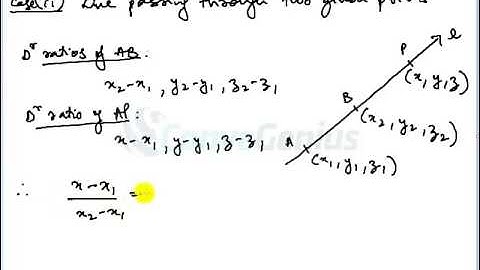 Case(i) Line passing through two given points
Dʳ ratios of AB:
x₂-x₁, y₂-y₁, z₂-z₁
Dʳ ratio of AP:
x-x₁, y-y₁, z-z₁
∴ x-x₁ / x₂-x₁ =
l
P
(x, y, z)
B
(x₂, y₂, z₂)
A
(x₁, y₁, z₁)